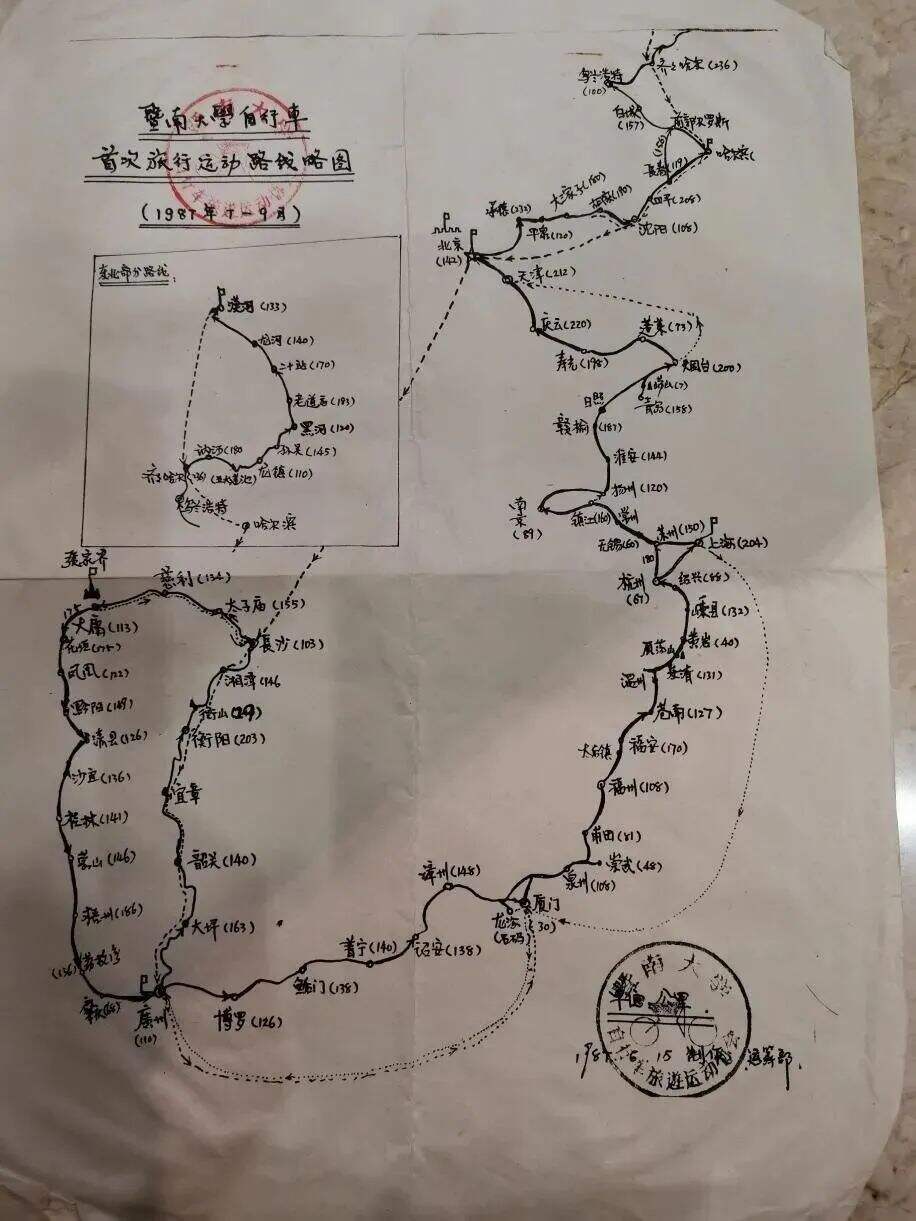 暨南大學自行車
首次旅行运动路线略图
(1987年7-9月)
东北部分路线:
漠河(133)
龙河(140)
二十站(170)
老道店(183)
黑河(120)
孙吴(145)
龙镇(110)
(五大连池)
讷河(180
齐齐哈尔
乌兰浩特
哈尔滨
齐齐哈尔(236)
乌兰浩特
(100)
白城
(157)
前郭尔罗斯
哈尔滨(
長春(119)
四平(208)
沈阳(108)
大凌子(180)
(190)
承德(232)
平泉(120)
北京
(142)
天津(212)
庆云(220)
寿光(198)
蓬莱(73)
烟台(200)
崂山(7)
青岛(158)
日照
赣榆(187)
淮安(144)
扬州(120)
南京
(89)
镇江(160)
常州
无锡(60)
苏州(150)
上海(204)
180
杭州
(67)
绍兴(88)
嵊县(132)
黄岩(40)
雁荡山
乐清(131)
温州
苍南(127)
福安(170)
福州(108)
莆田(81)
崇武(48)
泉州(108)
厦门
(30)
龙海
(石码)
漳州(148)
诏安(138)
普宁(140)
鲘门(138)
博罗(126)
廣州
(110)
大坪(163)
韶关(140)
宜章
衡阳(203)
衡山(29)
湘潭(146
長沙(103)
太子庙(155)
慈利(134)
张家界
125
大庸(113)
花垣(125)
凤凰(122)
黔阳(149)
靖县(126)
沙宜(136)
桂林(141)
荔山(146)
梧州(186)
(136)
肇庆(68)
暨南大学
单德公里
1987.6.15 制作 运筹部.
自行车旅遊运动